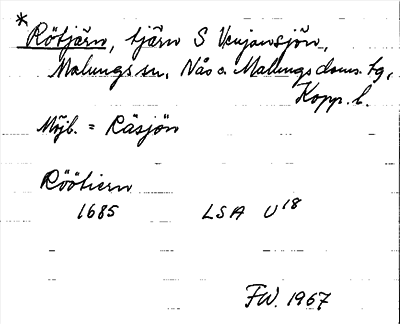 * Rötjärn, tjärn S Venjansjön,
Malungs sn, Nås o. Malungs doms. tg,
Kopp. l.
Möjl. = Räsjön
Röötiern
1685 LSA U18
FW. 1967